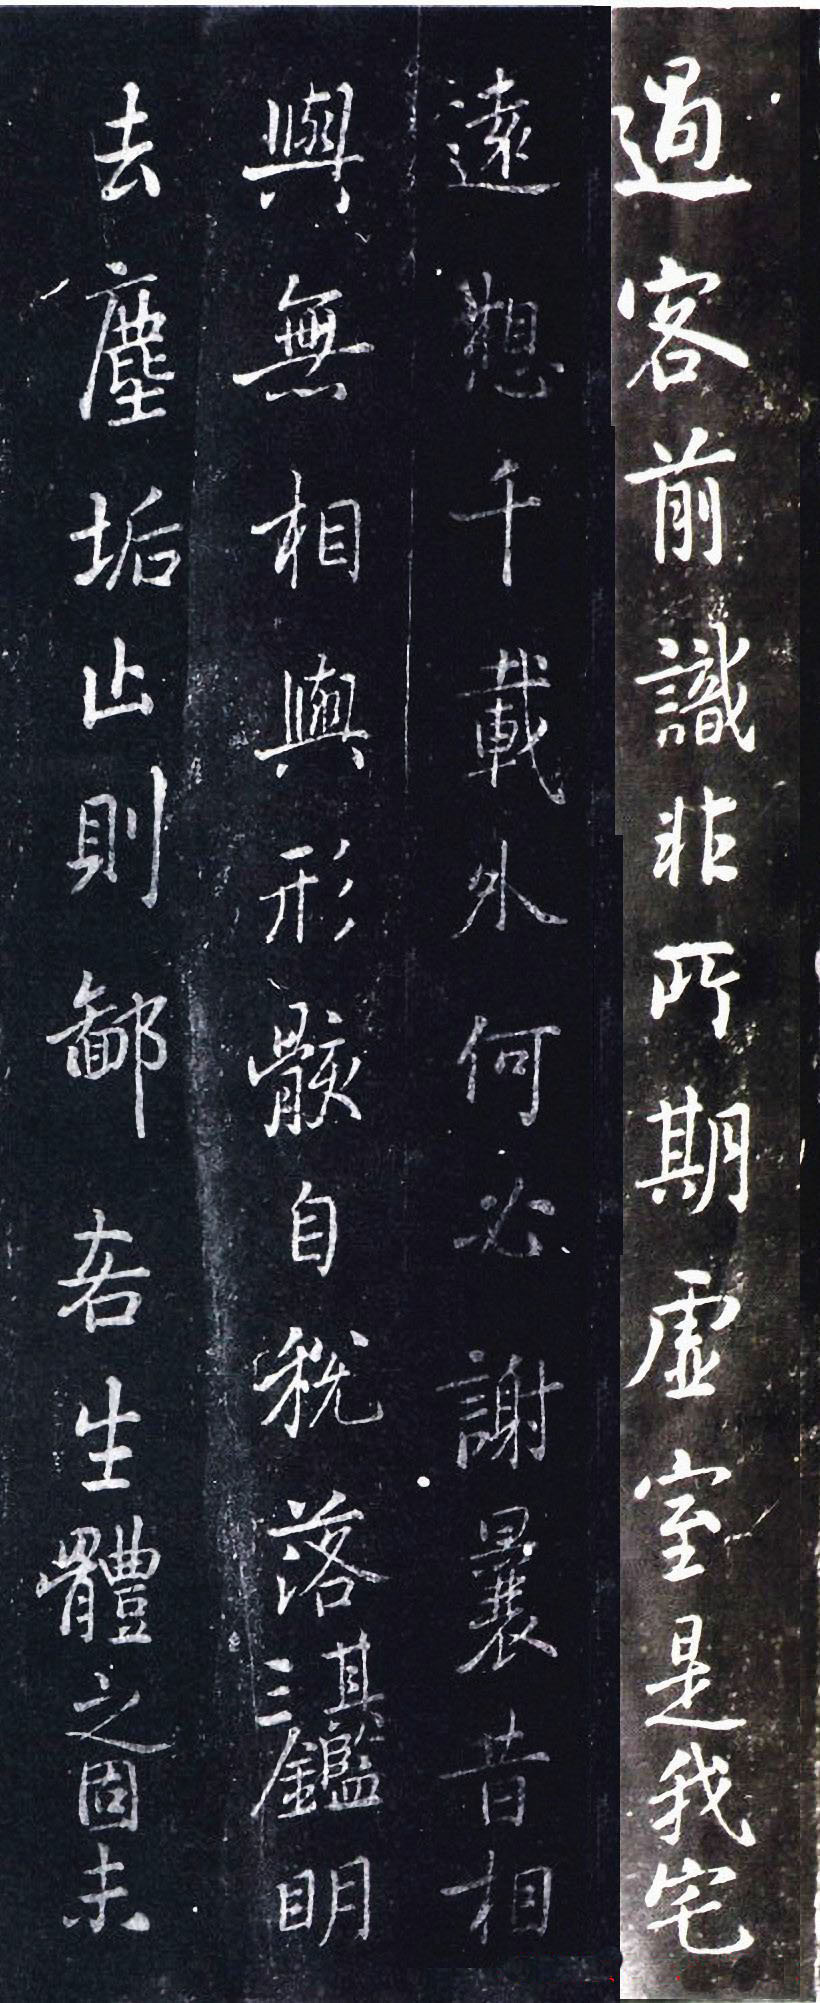 過客前識非所期虚室是我宅
遠想千載外何必謝曩昔相
與無相與形骸自税落其三鑑明
去塵垢止則鄙吝生體之固未